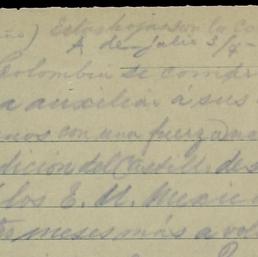 Estas hojas son la co
A de Julio 3/4-
Colombia se compr
a auxiliar á sus
nos con una fuerza na
dición del Castill. des
los E. U. Mexic
meses más a vol